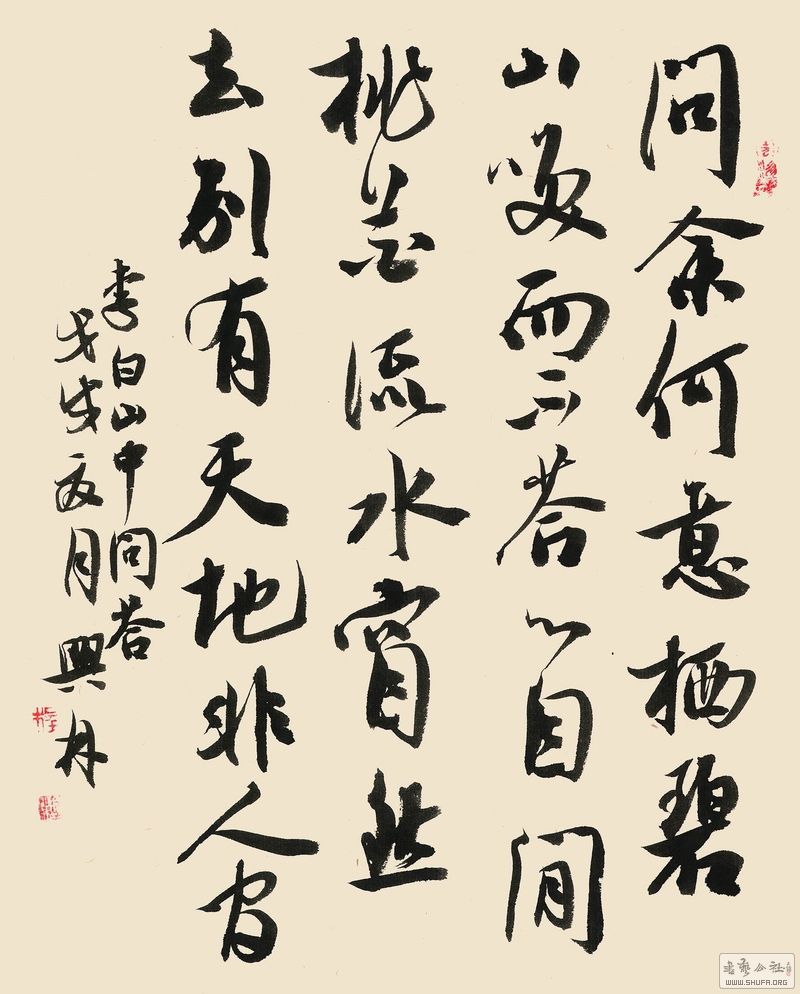 問余何意栖碧
山咲而不答心自閒
桃花流水窅然
去別有天地非人間
李白山中問答
戊戌夏月興林
書藝公社
WWW.SHUFA.ORG